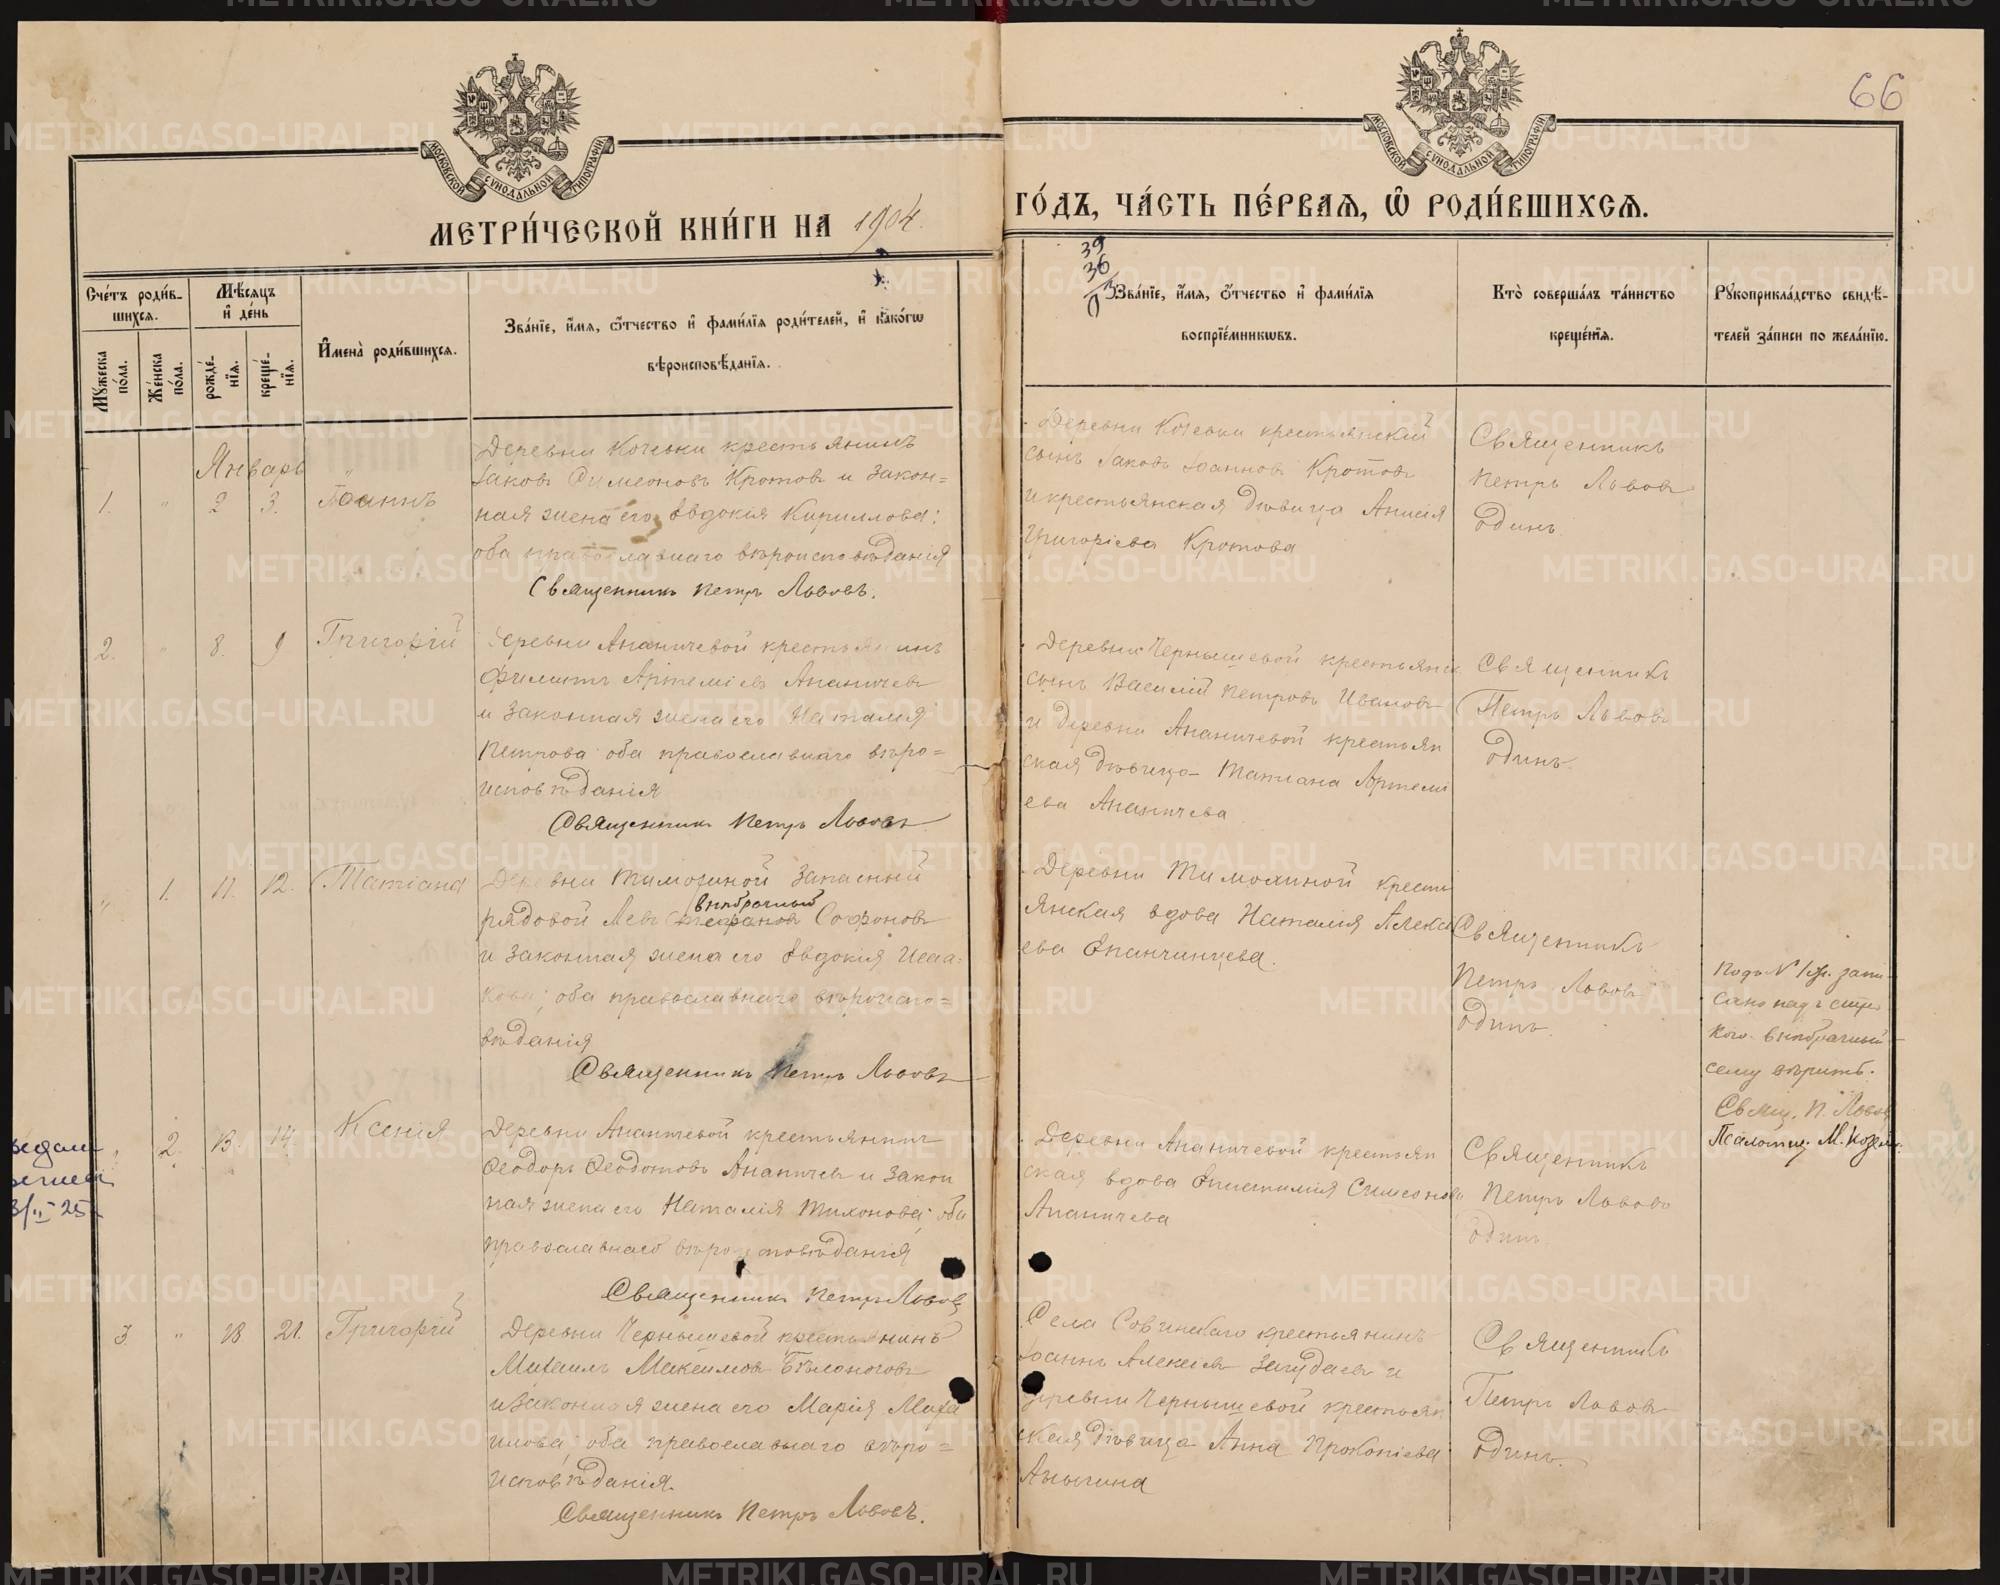 66
МОСКОВСКОЙ СУНОДАЛЬНОЙ ТИПОГРАФІИ
МОСКОВСКОЙ СУНОДАЛЬНОЙ ТИПОГРАФІИ
МЕТРИ́ЧЕСКОЙ КНИ́ГИ НА 1904.
ГО́ДЪ, ЧА́СТЬ ПЕ́РВАѦ, Ѡ҆ РОДИ́ВШИХСѦ.
Сче́тъ роди́в-
шихсѧ.
Мꙋжеска по́ла.
Же́нска по́ла.
Мѣ́сѧцъ
и҆ де́нь
рожде́-
нїѧ.
креще́-
нїѧ.
И҆мена̀ роди́вшихсѧ.
Зва́нїе, и҆́мѧ, ѻ҆́тчество и҆ фамі́лїѧ роди́телей, и҆ како́гѡ
вѣроисповѣ́данїѧ.
39
36
03
Зва́нїе, и҆́мѧ, ѻ҆́тчество и҆ фамі́лїѧ
воспрїе́мникѡвъ.
Кто̀ соверша́лъ та́инство
креще́нїѧ.
Рꙋкоприкла́дство свидѣ́-
телей за́писи по жела́нїю.
Январь
1. " 2 3. Іоаннъ
Деревни Кочевки крестьянинъ
Іаковъ Симеоновъ Кротовъ и закон=
ная жена его Евдокія Кириллова:
оба православнаго вѣроисповѣданія
Священникъ Петръ Львовъ.
Деревни Кочевки крестьянскій
сынъ Іаковъ Іоанновъ Кротовъ
и крестьянская дѣвица Анисія
Григоріева Кротова
Священникъ
Петръ Львовъ
один.
2. " 8. 9 Григорій
Деревни Ананичевой крестьянинъ
Филиппъ Артеміевъ Ананичевъ
и законная жена его Наталія
Петрова: оба православнаго вѣро=
исповѣданія
Священникъ Петръ Львовъ
Деревни Чернышевой крестьянск
сынъ Василій Петровъ Ивановъ
и деревни Ананичевой крестьян
ская дѣвица Татіана Артемі
ева Ананичева
Священникъ
Петръ Львовъ
одинъ
" 1. 11. 12. Татіана
Деревни Тимохиной запасный
внѣбрачный
рядовой Левъ Стефановъ Софоновъ
и законная жена его Евдокія Исаа-
кова; оба православнаго вѣроиспо=
вѣданія
Священникъ Петръ Львовъ
Деревни Тимохиной кресть
янская вдова Наталія Алекс
ева Епанчинцева.
Священникъ
Петръ Львовъ
одинъ.
Подъ № 1 ж. запи-
сано надъ стро
кою внѣбрачный
сему вѣрить.
Свящ. П. Львовъ
Псаломщ. М.
" 2. 13. 14. Ксенія
3/II-25
Деревни Ананичевой крестьянинъ
Ѳеодоръ Ѳеодотовъ Ананичевъ и закон
ная жена его Наталія Тихонова: оба
православнаго вѣроисповѣданія
Священникъ Петръ Львовъ
Деревни Ананичевой крестьян
ская вдова Епистимія Симеонова
Ананичева
Священникъ
Петръ Львовъ
один
3 " 18 21. Григорій
Деревни Чернышевой крестьянинъ
Михаилъ Максимовъ Бѣлоноговъ
и законная жена его Марія Миха
илова; оба православнаго вѣро=
исповѣданія.
Священникъ Петръ Львовъ.
Села Совинскаго крестьянинъ
Іоаннъ Алексіевъ Загудаевъ и
деревни Чернышевой крестьян
ская дѣвица Анна Прокопіева
Аныгина
Священникъ
Петръ Львовъ
одинъ.
METRIKI.GASO-URAL.RU